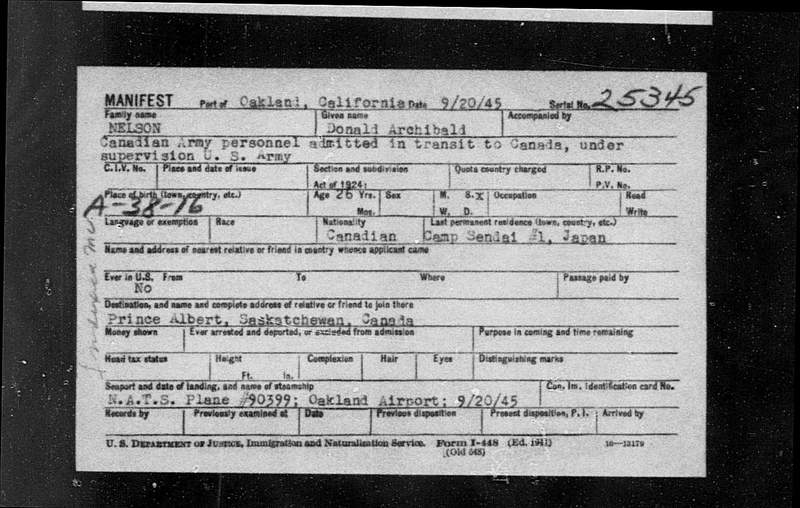 MANIFEST Port of Oakland, California Date 9/20/45 Serial No. 25345
Family name Given name Accompanied by
NELSON Donald Archibald
Canadian Army personnel admitted in transit to Canada, under
supervision U. S. Army
C.I.V. No. Place and date of issue Section and subdivision Quota country charged R.P. No.
Act of 1924: P.V. No.
Place of birth (town, country, etc.) Age 26 Yrs. Sex M. S.X Occupation Read
A-38-16 Mos. W. D. Write
Language or exemption Race Nationality Last permanent residence (town, country, etc.)
Canadian Camp Sendai #1, Japan
Name and address of nearest relative or friend in country whence applicant came
Ever in U.S. From To Where Passage paid by
No
Destination, and name and complete address of relative or friend to join there
Prince Albert, Saskatchewan, Canada
Money shown Ever arrested and deported, or excluded from admission Purpose in coming and time remaining
Head tax status Height Complexion Hair Eyes Distinguishing marks
Ft. In.
Seaport and date of landing, and name of steamship Con. Im. Identification card No.
N.A.T.S. Plane #90399; Oakland Airport; 9/20/45
Records by Previously examined at Date Previous disposition Present disposition, P. I. Arrived by
U. S. Department of Justice, Immigration and Naturalization Service. Form I-448 (Ed. 1941) 16—13179
(Old 548)